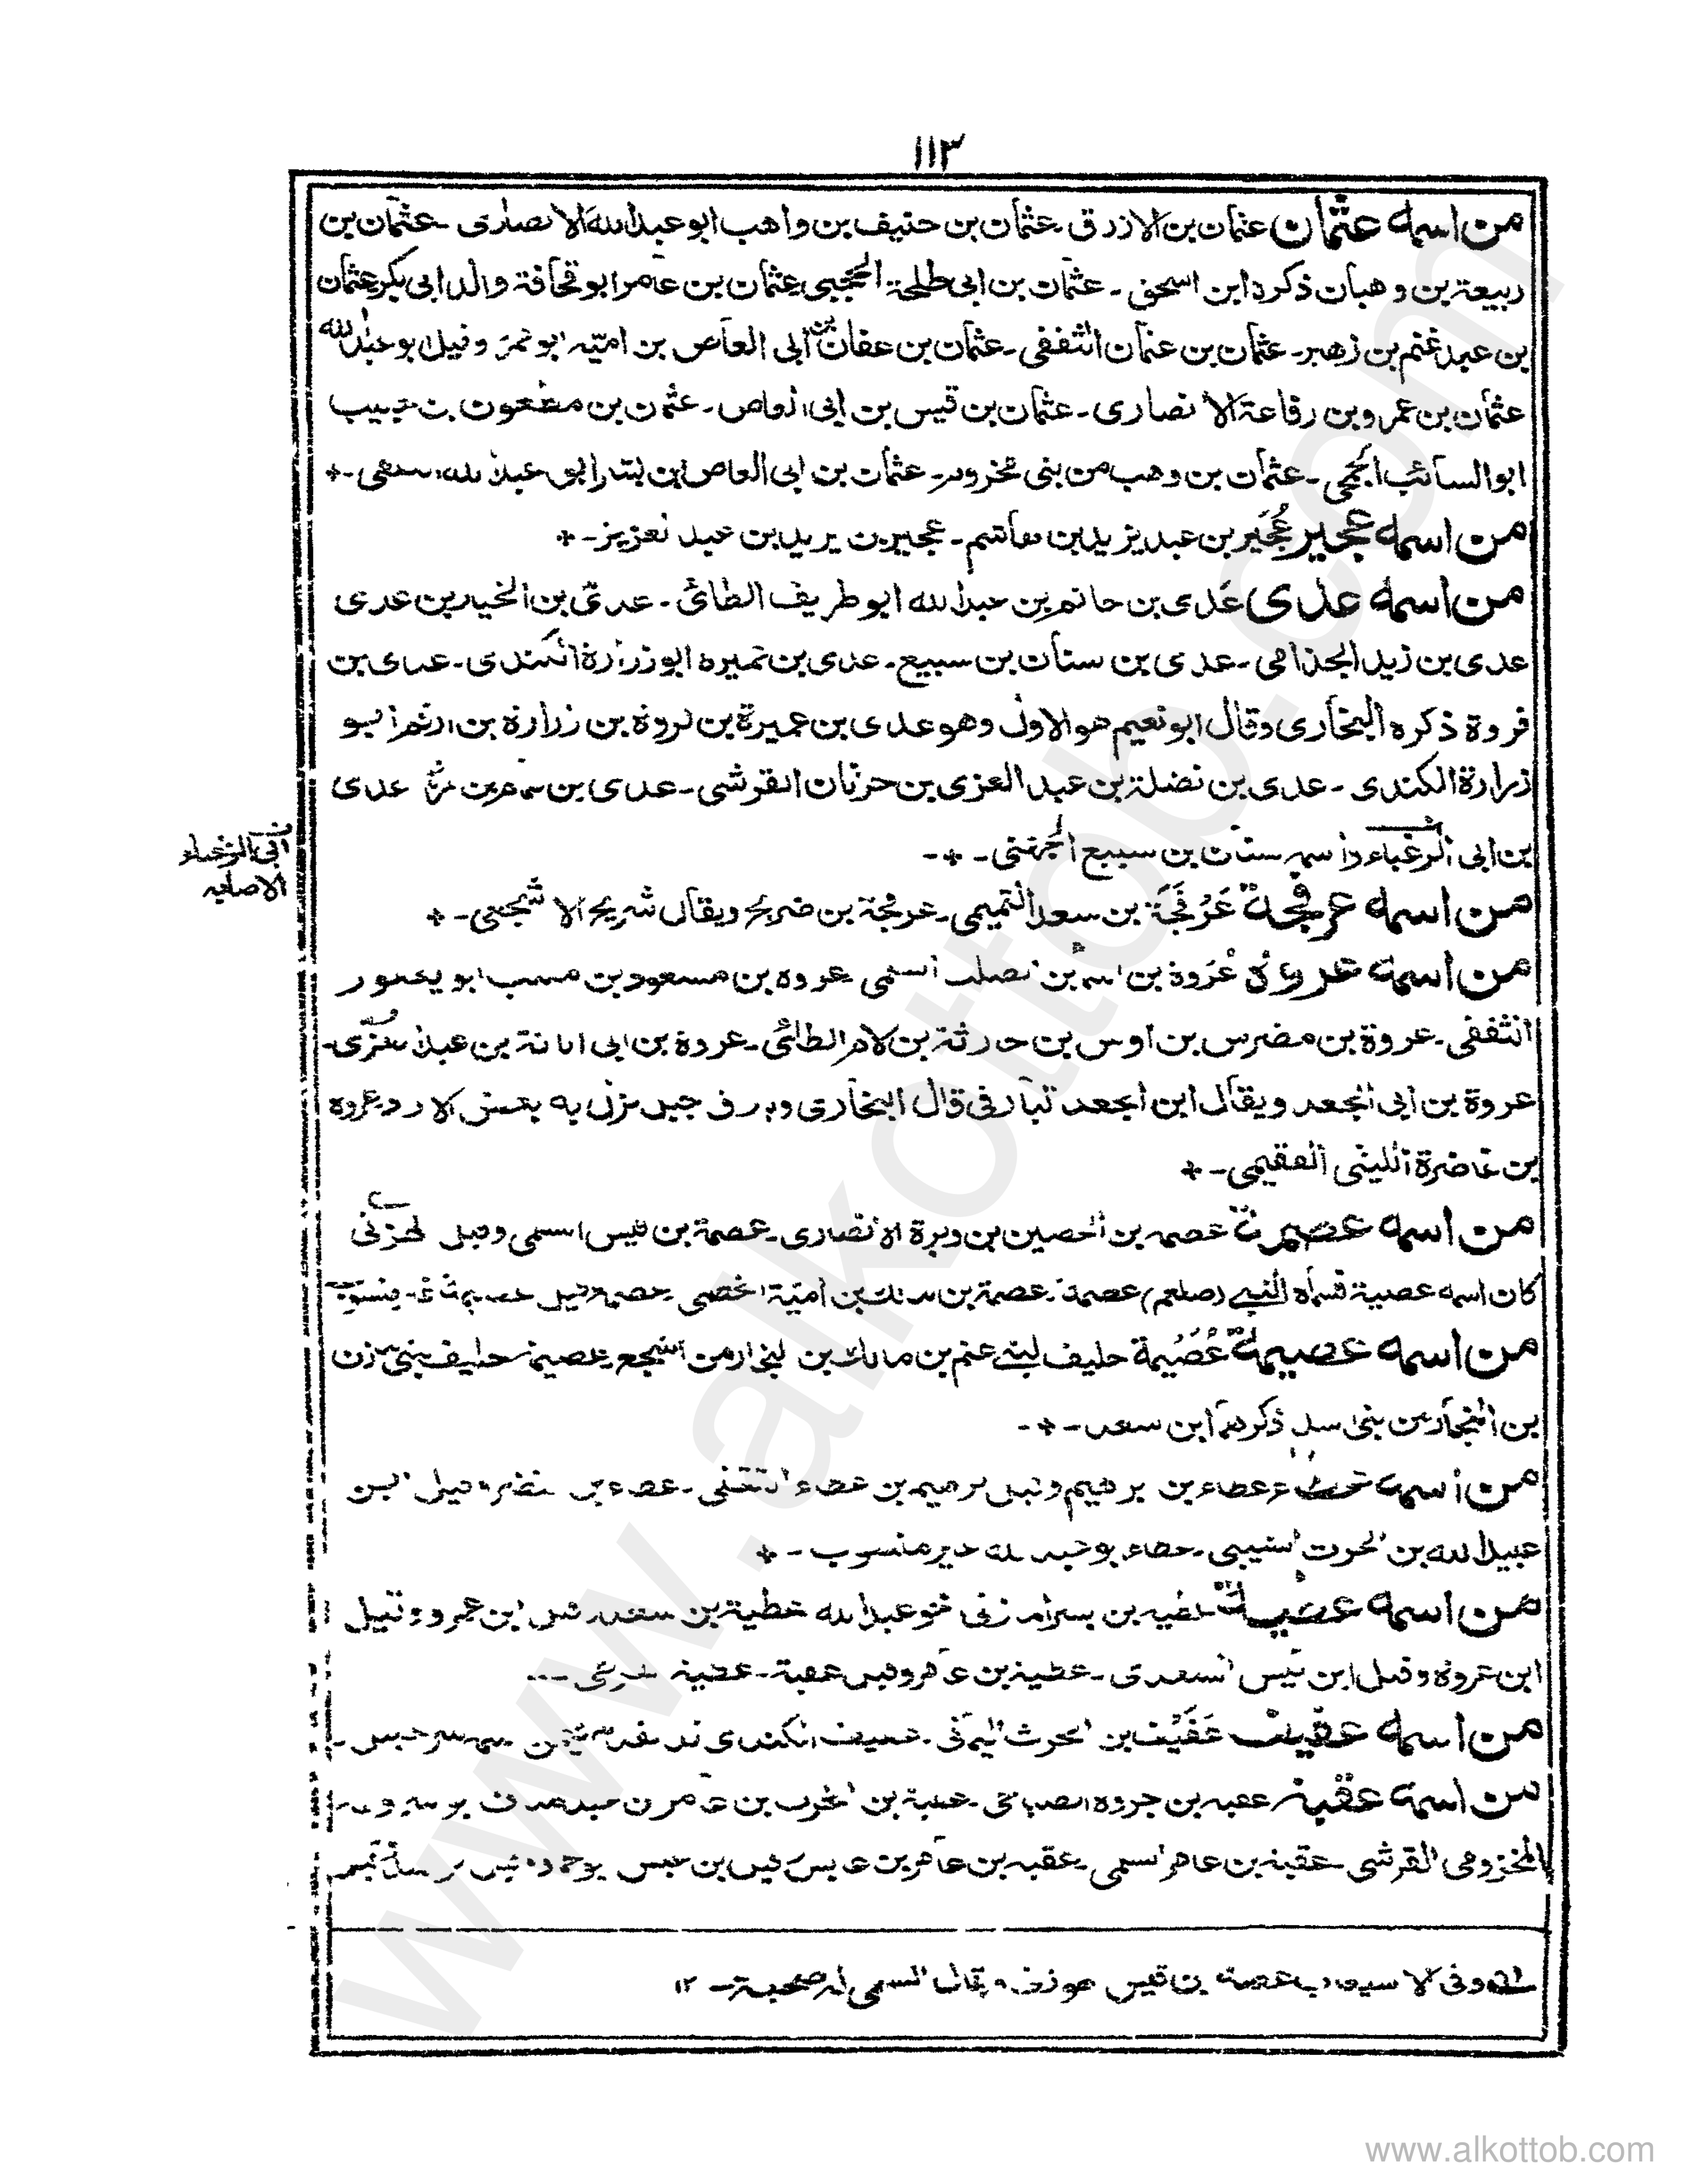 ١١٣
من اسمه عثمان عثمان بن الازرق۔ عثمان بن حنيف بن واهب ابو عبد الله الانصارى ۔ عثمان بن
ربيعة بن وهبان ذكره ابن اسحق ۔ عثمان بن ابى طلحة الحجبى عثمان بن عامر ابو قحافة والد ابى بكر عثمان
بن عبد غنم بن زهير۔ عثمان بن عثمان الثقفى ۔ عثمان بن عفان بن ابى العاص بن امية ابو عمر وقيل ابو عبد الله
عثمان بن عمرو بن رفاعة الانصارى ۔ عثمان بن قيس بن ابى العاص ۔ عثمان بن مظعون بن حبيب
ابو السائب الجمحى ۔ عثمان بن وهب من بنى مخزوم۔ عثمان بن ابى العاص بن ابو عبد الله ۔ +
من اسمه عجير عُجَير بن عبد يزيد بن هاشم ۔ عجير بن يزيد بن عبد العزيز ۔ +
من اسمه عدى عَدى بن حاتم بن عبد الله ابو طريف الطائى ۔ عدى بن الخيار بن عدى
عدى بن زيد الجذامى ۔ عدى بن سنان بن سبيع ۔ عدى بن عميره ابو زرارة الكندى ۔ عدى بن
فروة ذكره البخارى وقال ابو نعيم هو الاول وهو عدى بن عميرة بن فروة بن زرارة بن ارقم ابو
زرارة الكندى ۔ عدى بن نضلة بن عبد العزى بن حرثان القرشى ۔ عدى بن عدى
بن ابى الزغباء واسمه سنان بن سبيع الجهنى ۔ +۔
ابى الزغباء
الاصابه
من اسمه عرفجة عَرْفَجَة بن سعد التميمى ۔ عرفجة بن ضريح ويقال شريح الاشجعى ۔ +
من اسمه عروة عُروة بن اسماء بن الصلت السلمى عروه بن مسعود بن معتب ابو يعفور
الثقفى ۔ عروة بن مضرس بن اوس بن حارثة بن لام الطائى ۔ عروة بن ابى اثاثة بن عبد العزى۔
عروة بن ابى الجعد ويقال ابن الجعد البارقى قال البخارى وبارق جبل نزل به بعض الازد عروه
بن عاضرة الليثى الفقيمى ۔ +
من اسمه عصمة عصمه بن الحصين بن وبرة الانصارى ۔ عصمة بن قيس السلمى وقيل الهوزنى
كان اسمه عصية فسماه النبى (صلعم) عصمة ۔ عصمة بن مالك بن امية الخطمى عصمة وقيل
من اسمه عصيمة عُصَيْمَة حليف لبنى غنم بن مالك بن النجار من اشجع عصيمة حليف بنى مازن
بن النجار من بنى اسد ذكرهما ابن سعد ۔ +۔
من اسمه عطاء عطاء بن ابراهيم وقيل ابراهيم بن عطاء الثقفى ۔ عطاء بن النضر وقيل ابن
عبيد الله بن الحرث الشيبى ۔ عطاء ابو عبد الله غير منسوب ۔ +
من اسمه عطية عطيه بن بسر المازنى اخو عبد الله عطية بن سعد وقيل ابن عمرو وقيل
ابن عروه وقيل ابن قيس السعدى ۔ عطية بن عامر وقيل عقبة ۔ عطية القرظى ۔۔۔
من اسمه عفيف عَفَيْف بن الحرث اليمانى ۔ عفيف الكندى
من اسمه عقبة عقبه بن جروه الصباحى ۔ عقبة بن الحرث بن عامر بن
المخزومى القرشى ۔ عقبة بن عامر السلمى ۔ عقبه بن عامر بن عبس
وفى الاستيعاب عصمة بن قيس هوزنى ويقال السلمى له صحبة ۔ ١٢
www.alkottob.com
www.alkottob.com